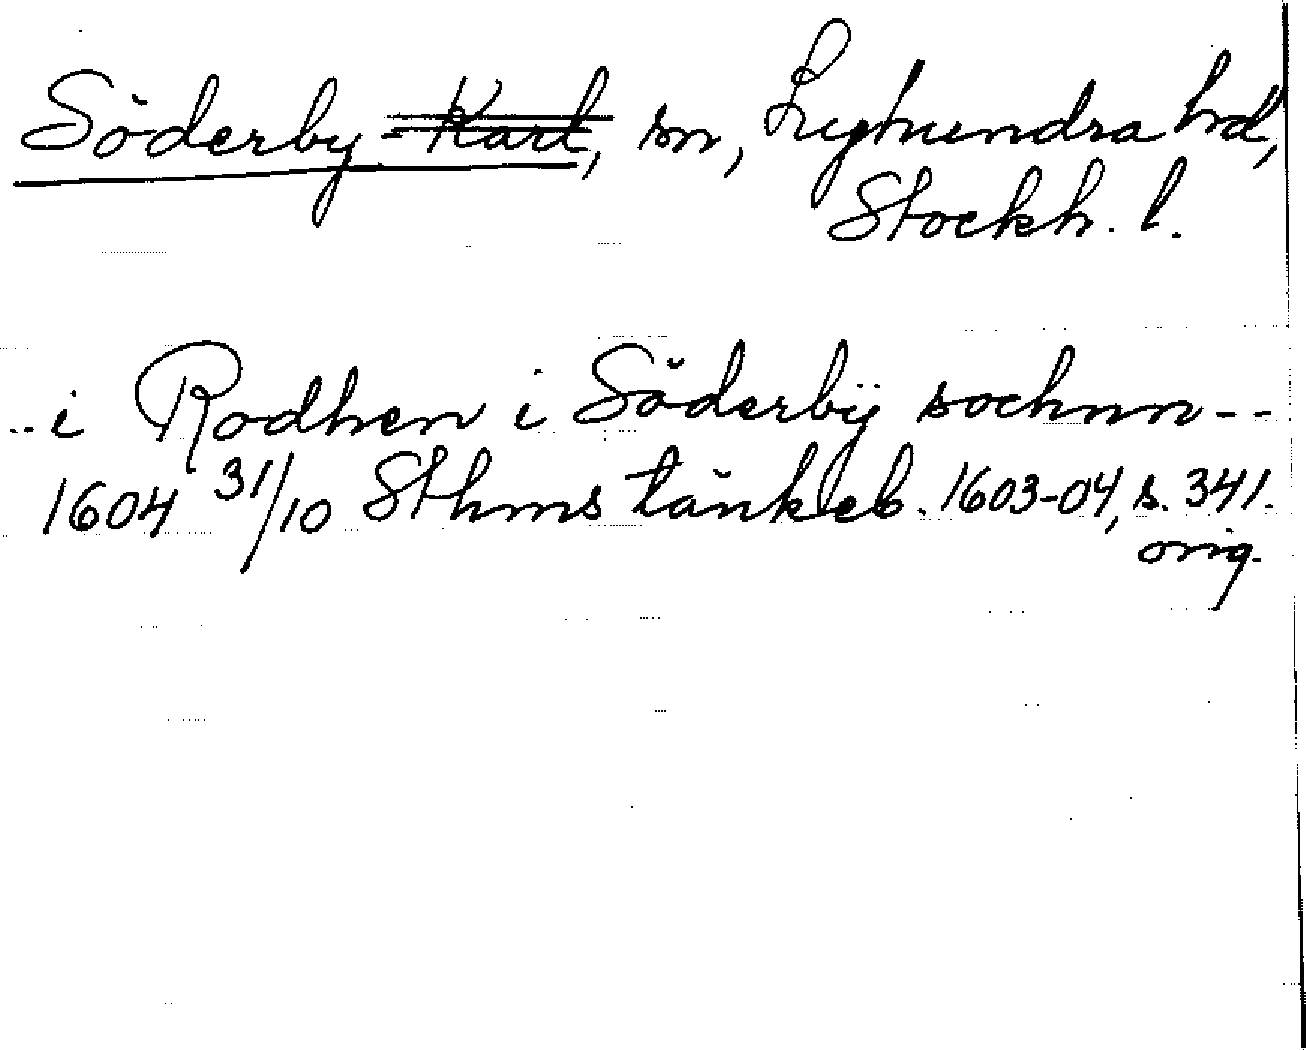 Söderby-Karl, sn, Lyhundra hd,
Stockh. l.
..i Rodhen i Söderbÿ sochnn--
1604 31/10 Sthms tänkeb. 1603-04, s. 341.
orig.